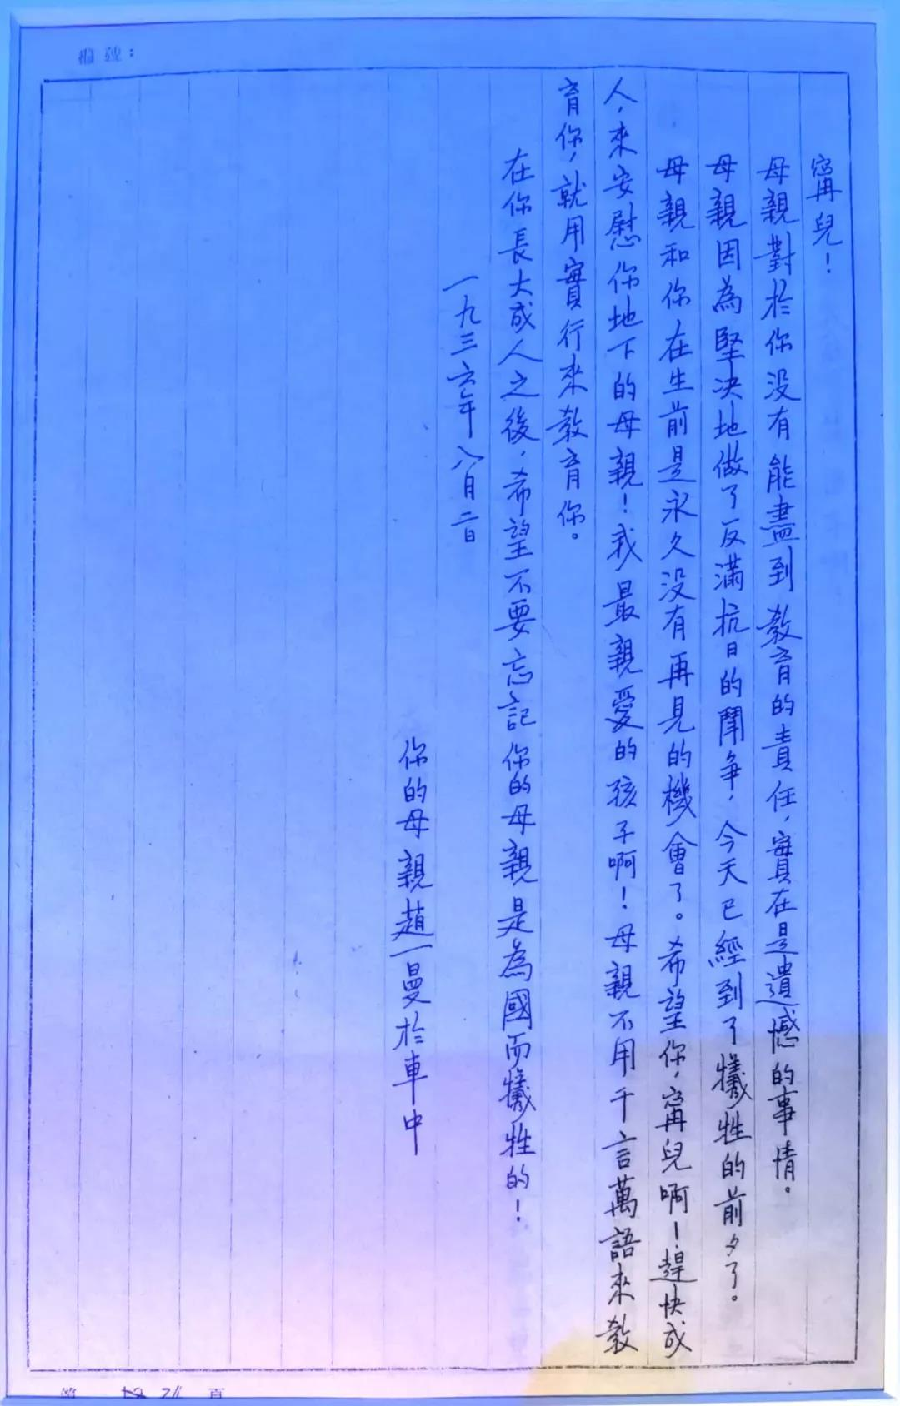 編號：
甯兒！
母親對於你沒有能盡到教育的責任，實在是遺憾的事情。
母親因為堅决地做了反滿抗日的鬥争，今天已經到了犧牲的前夕了。
母親和你在生前是永久没有再見的機會了。希望你，甯兒啊！趕快成
人，來安慰你地下的母親！我最親愛的孩子啊！母親不用千言萬語來教
育你，就用實行來教育你。
在你長大成人之後，希望不要忘記你的母親是為國而犧牲的！
一九三六年八月二日
你的母親趙一曼於車中